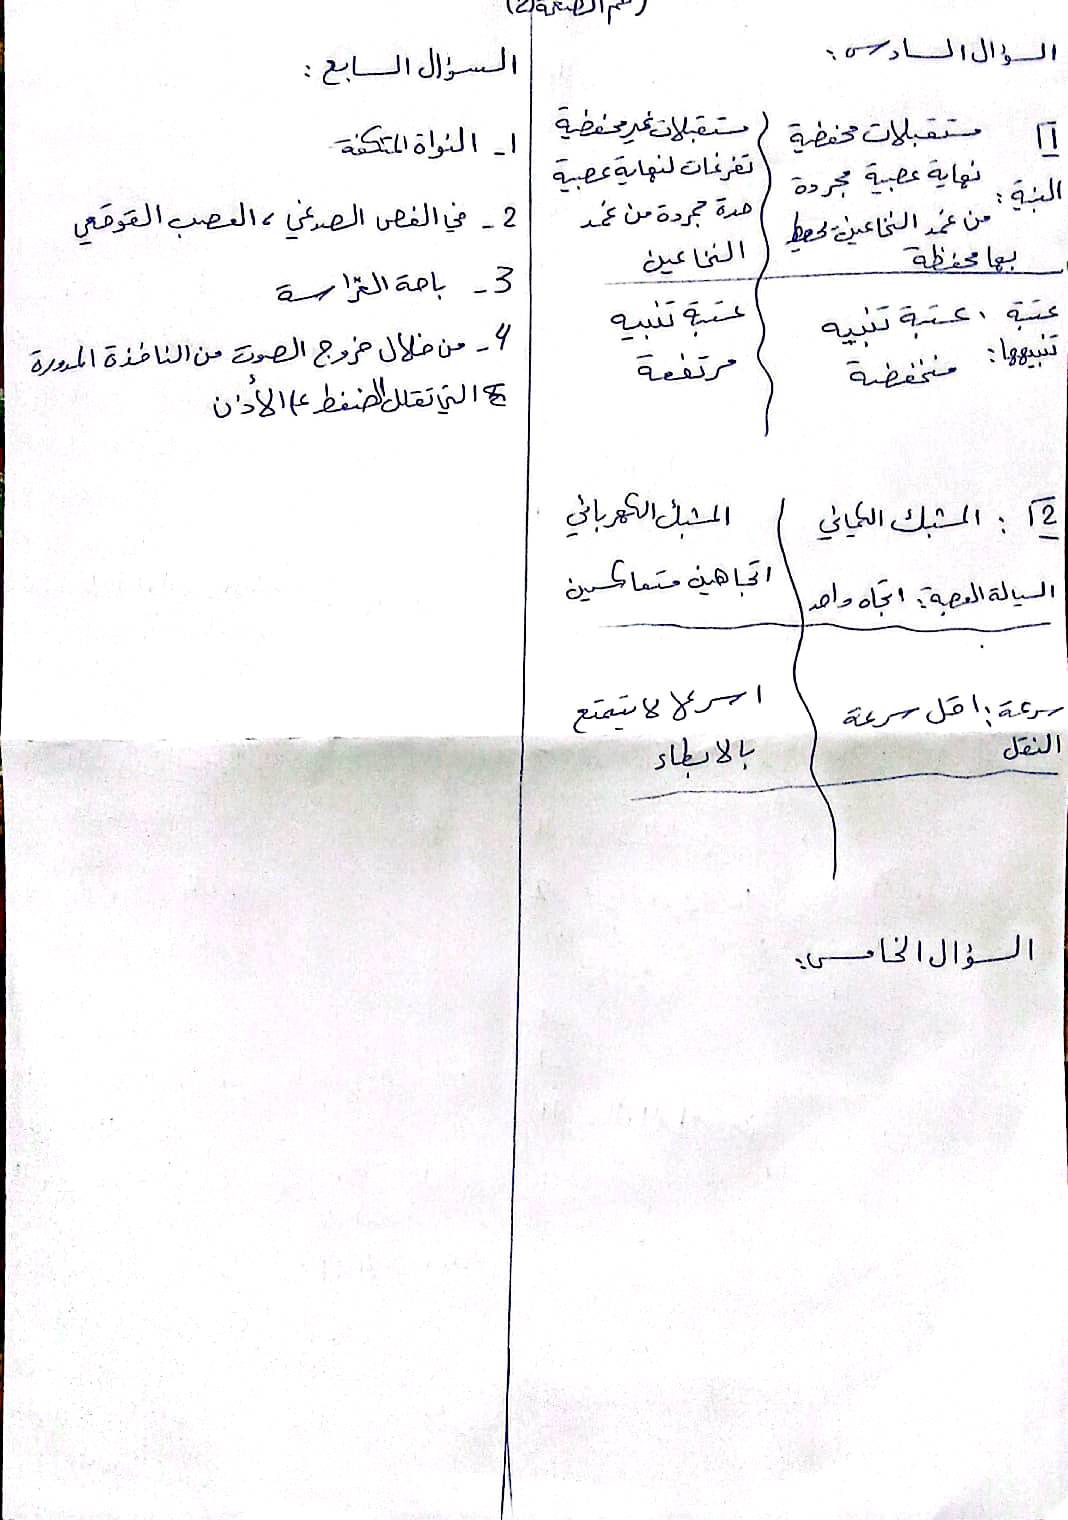 رقم الصفحة (2)
السؤال السادس:
1 مستقبلات محفظية
البنية: نهاية عصبية مجردة
من غمد النخاعين يحيط
بها محفظة
مستقبلات غير محفظية
تفرغات لنهاية عصبية
حدة مجردة من غمد
النخاعين
عتبة تنبيهها: عتبة تنبيه
منخفضة
عتبة تنبيه
مرتفعة
2 : المشبك الكيميائي
السيالة العصبية: اتجاه واحد
المشبك الكهربائي
اتجاهين متعاكسين
سرعة النقل: اقل سرعة
اسرع لا يتمتع
بالابطاء
السؤال الخامس:
السؤال السابع:
1- النواة المتكتفة
2- في الفص الصدغي، العصب القوقعي
3- باحة القراسة
4- من خلال خروج الصوت من النافذة المدورة
التي تقلل الضغط على الأذن